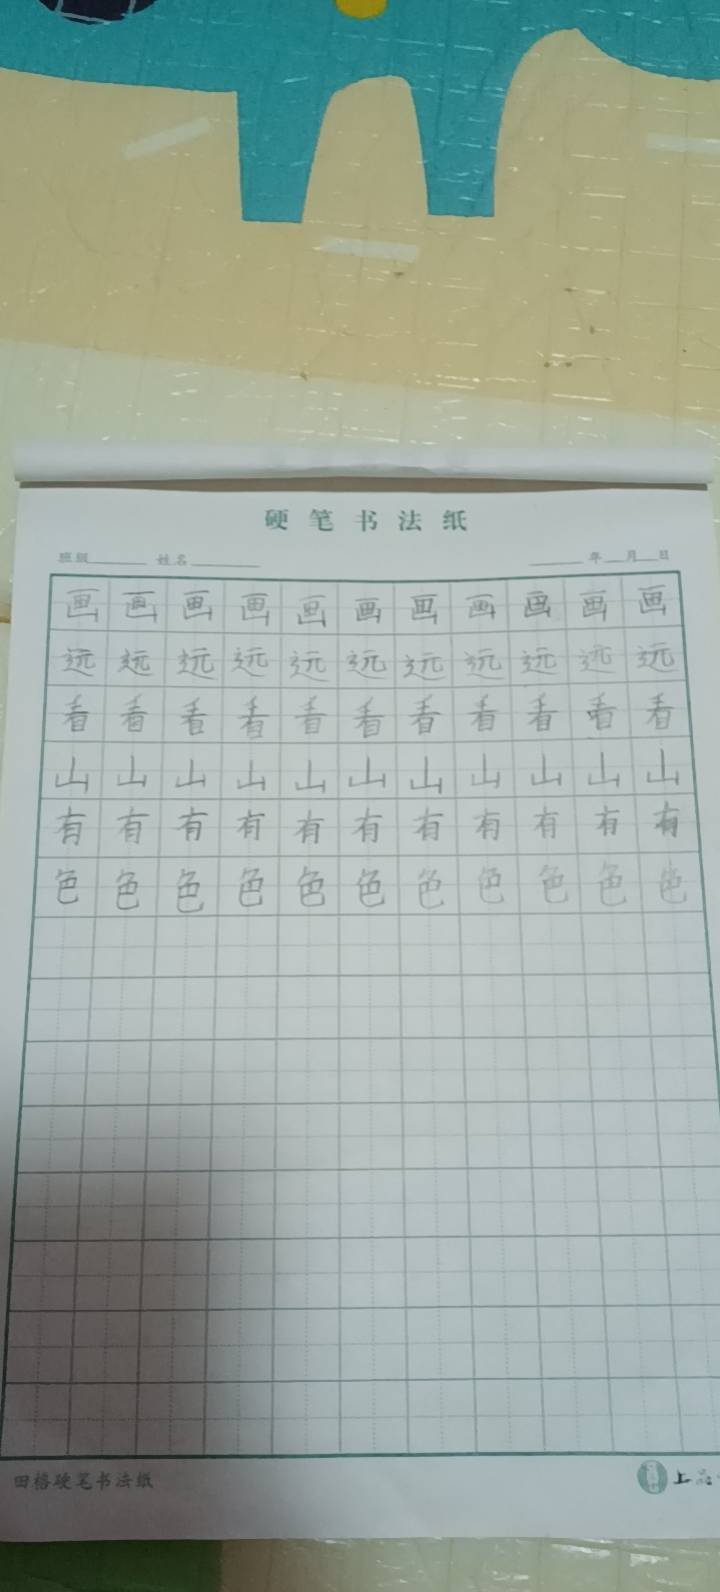 硬笔书法纸
班级 姓名 年 月 日
画 画 画 画 画 画 画 画 画 画 画
远 远 远 远 远 远 远 远 远 远 远
看 看 看 看 看 看 看 看 看 看 看
山 山 山 山 山 山 山 山 山 山 山
有 有 有 有 有 有 有 有 有 有 有
色 色 色 色 色 色 色 色 色 色 色
田格硬笔书法纸 上品